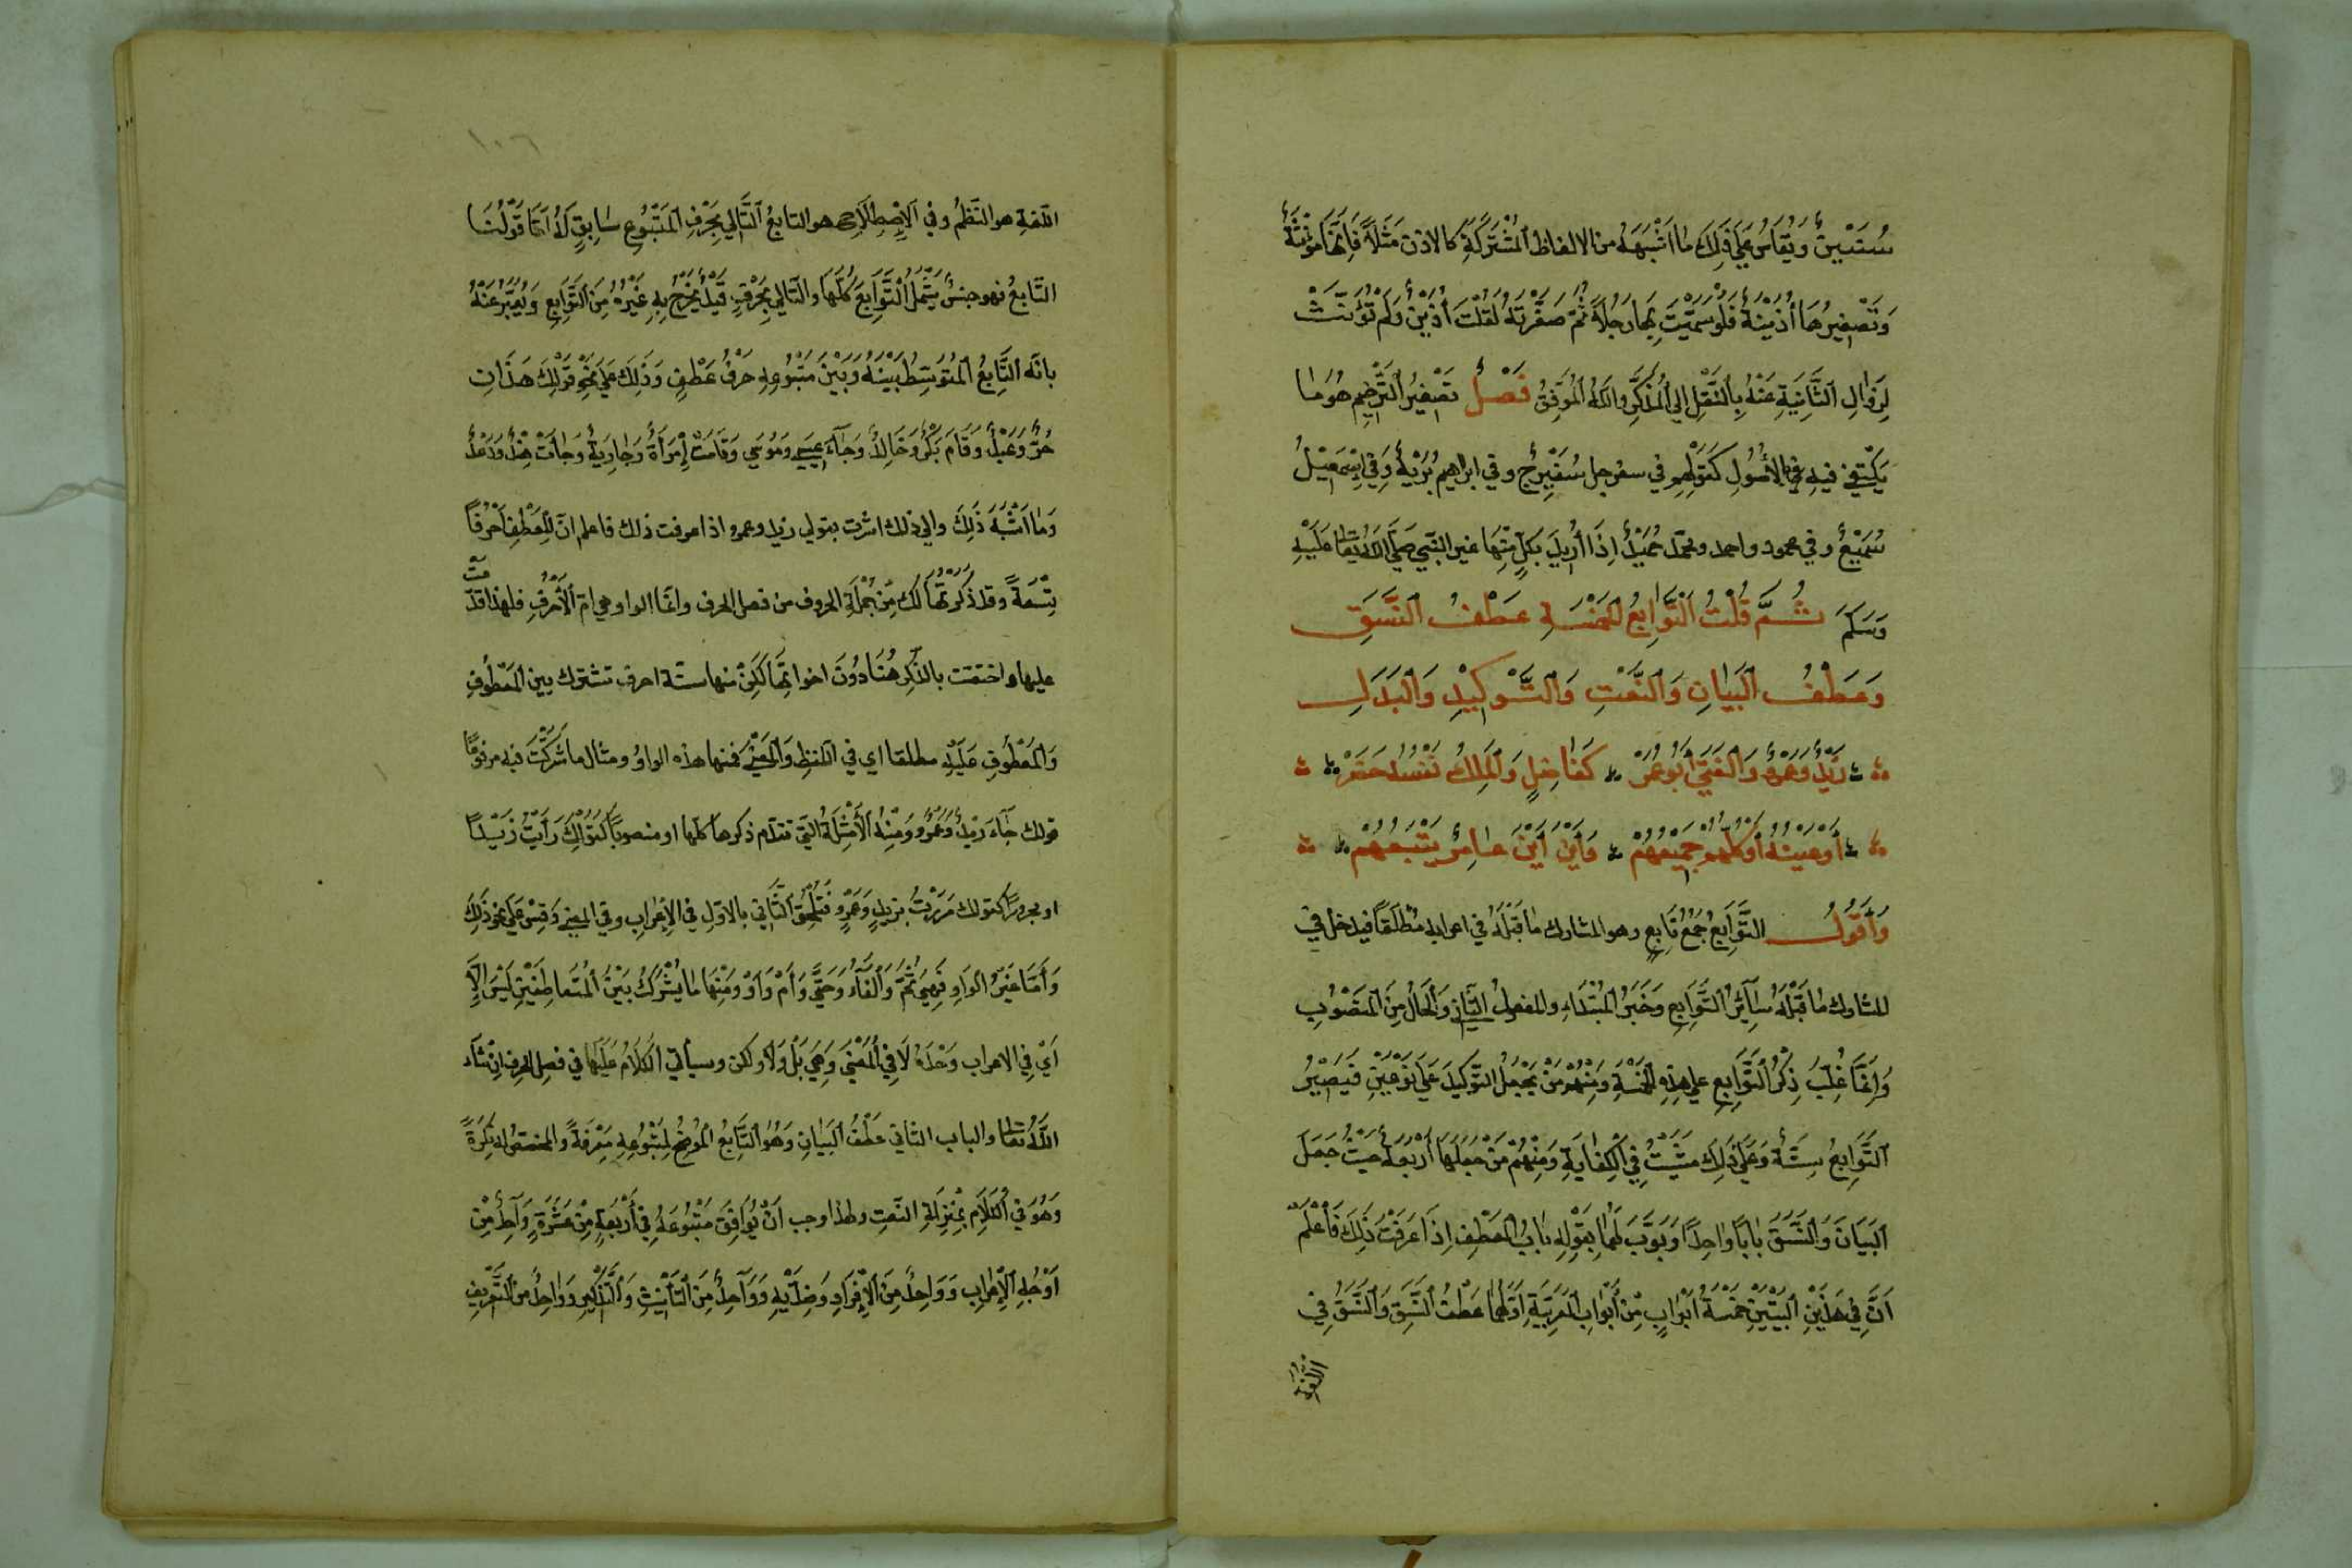 سُتَيْنٌ وَيُقَاسُ عَلَى ذَلِكَ مٰا اَشْبَهَهُ من الالفاظ اَلْمُشْتَرَكَةِ كالاذن مَثَلاً فَاِنَّهَا مُؤَنَّثَةٌ
وَتَصْغِيرُهَا أُذَيْنَةٌ فَلَوْ سَمَّيْتَ بِهَا رَجُلاً ثُمَّ صَغَّرْتَهُ لَقُلْتَ أُذَيْنٌ وَلَمْ تُؤَنِّثْ
لِزَوٰالِ اَلتَّانِيَةِ عَنْهُ بِالنَّقْلِ اِلى اَلْمُذَكَّرِ واللهُ اَلْمُوَفِّقُ فَصْلٌ تَصْغِيرُ اَلتَّرْخِيمِ هُوَ مٰا
يَكْتَفِى فيهِ بِالْأُصُولِ كَقَوْلِهِم في سفرجل سُفَيْرِجٌ وفي ابراهيم بُرَيْهٌ وَفي اِسْمَعِيْلَ
سُمَيْعٌ وفي محمود واحمد ومحمّد حُمَيْدٌ اِذَا اُرِيْدَ بِكُلٍّ مِنْهَا غير النَّبي صَلَّى اللهُ تعالى عَلَيْهِ
وَسَلَّمَ ثُمَّ قُلْتُ اَلتَّوَابِعُ الخَمْسَةِ عَطْفُ اَلنَّسَقِ
وَعَطْفُ اَلْبَيٰانِ وَالنَّعْتِ وَالتَّوكِيْدِ وَالْبَدَلِ
زَيْدٌ وَعَمْرٌو وَالْفَتَى أَبُو عُمَرْ كَفٰاضِلٍ وَالْمَلِكُ نَفْسُهُ حَضَرْ
أَوْ عَيْنُهُ أَوْ كُلُّهُمْ جَمِيْعُهُمْ وَأَيْنَ أَيْنَ عٰامِرٌ يَتْبَعُهُمْ
وَأَقُولُ التَّوَابِعُ جَمْعُ تَابِعٍ وهو المشارك مٰا قَبْلَهُ في اعرابه مُطْلَقاً فيدخل في
المشارك مٰا قَبْلَهُ سٰائِرُ اَلتَّوَابِعِ وَخَبَرُ اَلْمُبْتَدَاءِ والمفعولُ الثّانِي وَالْحَالُ مِنَ اَلْمَنْصُوبِ
وَاِنَّمَا غُلِبَ ذِكْرُ اَلتَّوَابِعِ على هذِهِ الْخَمْسَةِ وَمِنْهُمْ مَنْ يَجْعَلُ التَّوكِيدَ عَلَى نَوْعَيْنِ فَيَصِيْرُ
اَلتَّوَابِعُ سِتَّةً وَعَلَى ذَلِكَ مَشَيْتُ فِي اَلْكِفٰايَةِ وَمِنْهُمْ مَنْ جَعَلَهَا أَرْبَعَةً حَيْثُ جَعَلَ
اَلْبَيَانَ وَالنَّسَقَ بٰابًا وٰاحِدًا وَبَوَّبَ لَهُمٰا بِقَوْلِهِ بٰابُ الْعَطْفِ اِذَا عَرَفْتَ ذَلِكَ فَاعْلَمْ
اَنَّ فِي هَذَيْنِ اَلْبَيْتَيْنِ خَمْسَةَ اَبْوٰابٍ مِّنْ أَبْوٰابِ اَلْعَرَبِيَّةِ اَوَّلُهَا عَطْفُ اَلنَّسَقِ وَالنَّسَقُ فِي
اللّغة
١٠٦
اللّغةِ هو النَّظمُ وفي اَلاِصْطِلَاحِ هو التابعُ اَلتَّالِي بِحَرْفٍ اَلْمَتْبُوعِ سٰابِقٍ لَهُ اَمَّا قَوْلُنَا
التَّابِعُ فهو جنسٌ يَشْمَلُ اَلتَّوَابِعَ كُلَّهَا والتالي بِحَرْفٍ قَيْدٌ يَخْرُجُ بِهِ غَيْرُهُ مِنَ اَلتَّوَابِعِ وَيُعَبَّرُ عَنْهُ
بانّه اَلتَّابِعُ اَلْمُتَوَسِّطُ بَيْنَهُ وَبَيْنَ مَتْبُوعِهِ حَرْفُ عَطْفٍ وَذَلِكَ عَلَى نَحْوِ قَوْلِكَ هَذَانِ
حُرٌّ وَعَبْدٌ وَقَامَ بَكْرٌ وَخَالِدٌ وَجٰاءَ عِيسَى وَمُوسَى وَقَامَتْ اِمْرَأَةٌ وَجٰارِيَةٌ وَجٰاءَتْ هِنْدٌ وَدَعْدٌ
وَمٰا اَشْبَهَ ذَلِكَ والى ذلك اشرت بقولي زيد وعمرو اذا عرفت ذلك فاعلم انّ لِلْعَطْفِ اَحْرُفًا
تِسْعَةً وقد ذَكَرْتُهَا لَكَ مِنْ جُمْلَةِ الحروف من فصل الحرف وامّا الواو هي امّ اَلْأَحْرُفِ فلهذا قدّمت
عليها واختصّت بالذّكر هُنَا دُونَ اخواتِهَا لَكِنْ منها ستّة احرف تشترك بين اَلْمَعْطُوفِ
وَاَلْمَعْطُوفِ عَلَيْهِ مطلقا اي في اللفظ وَاَلْمَعْنَى فمنها هذه الواوُ ومثال ما شَرَّكَتْ فيه مرفوعًا
قولك جٰاءَ زيدٌ وَعَمْرٌو وَمِنْهُ اَلْأَمْثِلَةُ الَّتِي تقدّم ذكرها كلّها او منصوبًا كَقَوْلِكَ رَاَيْتُ زَيْدًا
او مجرورًا كقولك مَرَرْتُ بزيدٍ وَعَمْرٍو فَتُلْحِقُ اَلثَّانِي بالاوّل في الاِعْرٰابِ وفي المعنى وَقِسْ عَلَى نحو ذَلِكَ
وَأَمَّا غَيْرُ الوٰاوِ فَهِيَ ثُمَّ وَالْفَاءُ وَحَتَّى وَأَمْ وَأَوْ وَمِنْهَا مٰا يُشْرِكُ بَيْنَ اَلْمُتَعٰاطِفَيْنِ لَيْسَ اِلَّا
اَيْ فِي الاعراب وَحْدَهُ لَا فِي اَلْمَعْنَى وَهِيَ بَلْ وَلَا ولكن وسيأتي اَلْكَلَامُ عَلَيْهَا في فصل الحرف اِنْ شَاءَ
اللهُ تعالى والباب الثاني عَطْفُ اَلْبَيٰانِ وَهُوَ اَلتَّابِعُ اَلْمُوضِحُ لِمَتْبُوعِهِ مَعْرِفَةً والمخصّص له نَكِرَةً
وَهُوَ في اَلْكَلَامِ بِمَنْزِلَةِ النّعتِ ولهذا وجب اَنْ يُوَافِقَ مَتْبُوعَهُ فِي أَرْبَعَةٍ مِنْ عَشَرَةٍ وَاحِدٌ مِنْ
اَوْجُهِ اَلْاِعْرٰابِ وَوَاحِدٌ مِنَ اَلْاِفْرَادِ وَضِدَّيْهِ وَوَاحِدٌ مِنَ اَلتَّأْنِيثِ وَاَلتَّذْكِيرِ وَوٰاحِدٌ من اَلتَّعْرِيفِ